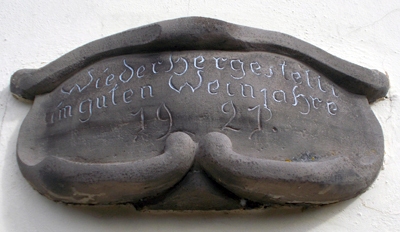 Wiederhergestellt
im guten Weinjahre
1921.